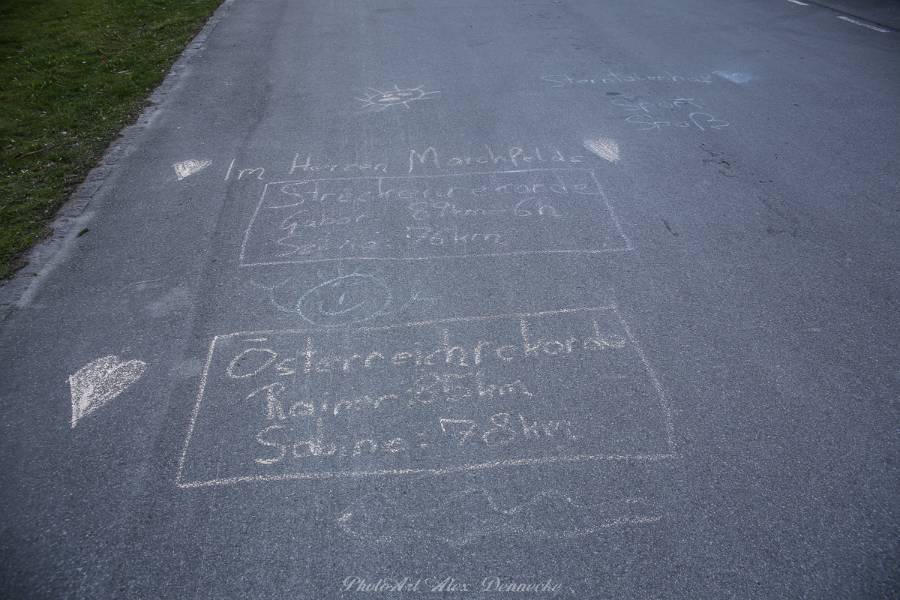 Spaß
Im Herzen Marchfelds
Streckenrekorde
Gabor 89km 6h
78km
Österreichrekorde
Rainer 85km
Sabine: 78km
PhotoArt Alex Dennecke